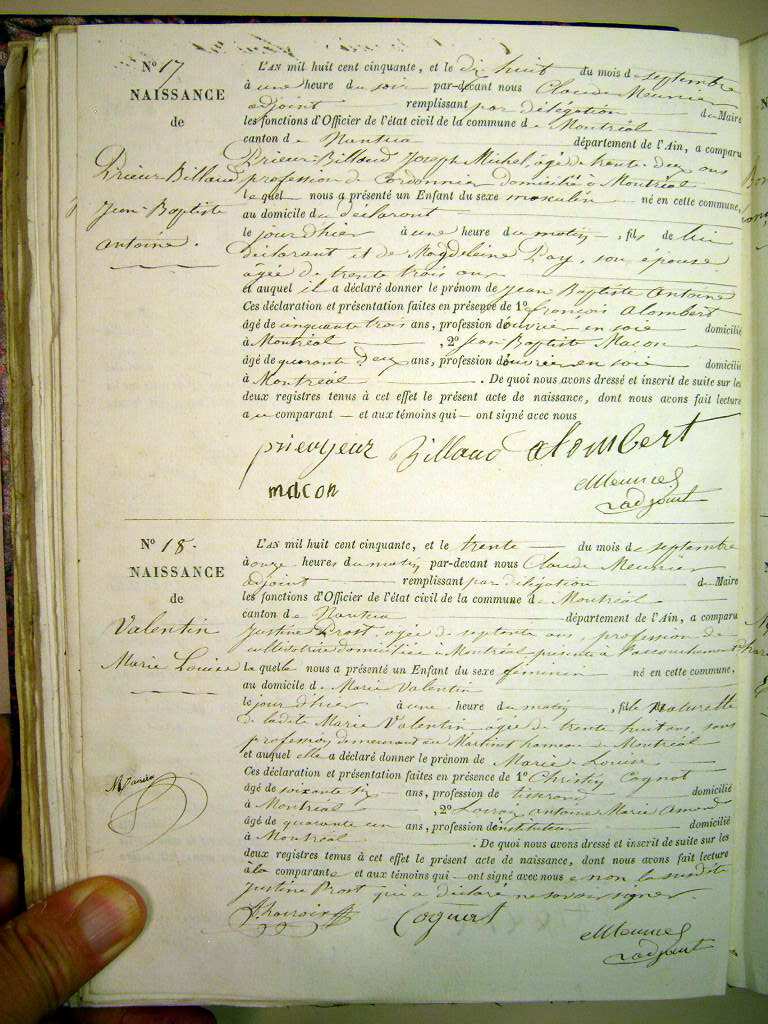 N° 17
NAISSANCE
de
Prieur-Billaud
Jean-Baptiste
Antoine.
L'AN mil huit cent cinquante, et le dix huit du mois de septembre
à une heure du soir par-devant nous Claude Meunier
adjoint remplissant par délégation du Maire
les fonctions d'Officier de l'état civil de la commune de Montréal
canton de Nantua département de l'Ain, a comparu
Prieur-Billaud Joseph Michel, âgé de trente-deux ans
profession de Cordonnier domicilié à Montréal
lequel nous a présenté un Enfant du sexe masculin né en cette commune,
au domicile du déclarant
le jour d'hier à une heure du matin, fils de lui
déclarant et de Magdeleine Pay, son épouse
âgée de trente trois ans
et auquel il a déclaré donner le prénom de Jean Baptiste Antoine
Ces déclaration et présentation faites en présence de 1° françois Alombert
âgé de cinquante trois ans, profession d'ouvrier en soie domicilié
à Montréal, 2° Jean Baptiste Macon
âgé de quarante deux ans, profession d'ouvrier en soie domicilié
à Montréal. De quoi nous avons dressé et inscrit de suite sur les
deux registres tenus à cet effet le présent acte de naissance, dont nous avons fait lecture
au comparant et aux témoins qui ont signé avec nous
Billaud Alombert
macon Meunier
adjoint
N° 18.
NAISSANCE
de
Valentin
Marie Louise
L'AN mil huit cent cinquante, et le trente du mois de septembre
à onze heures du matin par-devant nous Claude Meunier
adjoint remplissant par délégation du Maire
les fonctions d'Officier de l'état civil de la commune de Montréal
canton de Nantua département de l'Ain, a comparu
Justine Prost, agée de septente ans profession de
cultivatrice domiciliée à Montréal présente à l'accouchement
laquelle nous a présenté un Enfant du sexe féminin né en cette commune,
au domicile de Marie Valentin
le jour d'hier à une heure du matin, fille naturelle
de ladite Marie Valentin âgée de trente huit ans sans
profession demeurant au Martinet hameau de Montréal
et auquel elle a déclaré donner le prénom de Marie Louise
Ces déclaration et présentation faites en présence de 1°
âgé de soixante six ans, profession de tisserand domicilié
à Montréal, 2° Antoine Marie
âgé de quarante un ans, profession d'instituteur domicilié
à Montréal. De quoi nous avons dressé et inscrit de suite sur les
deux registres tenus à cet effet le présent acte de naissance, dont nous avons fait lecture
à la comparante et aux témoins qui ont signé avec nous et non la susdite
Justine Prost qui a déclaré ne savoir signer.
Meunier
adjoint